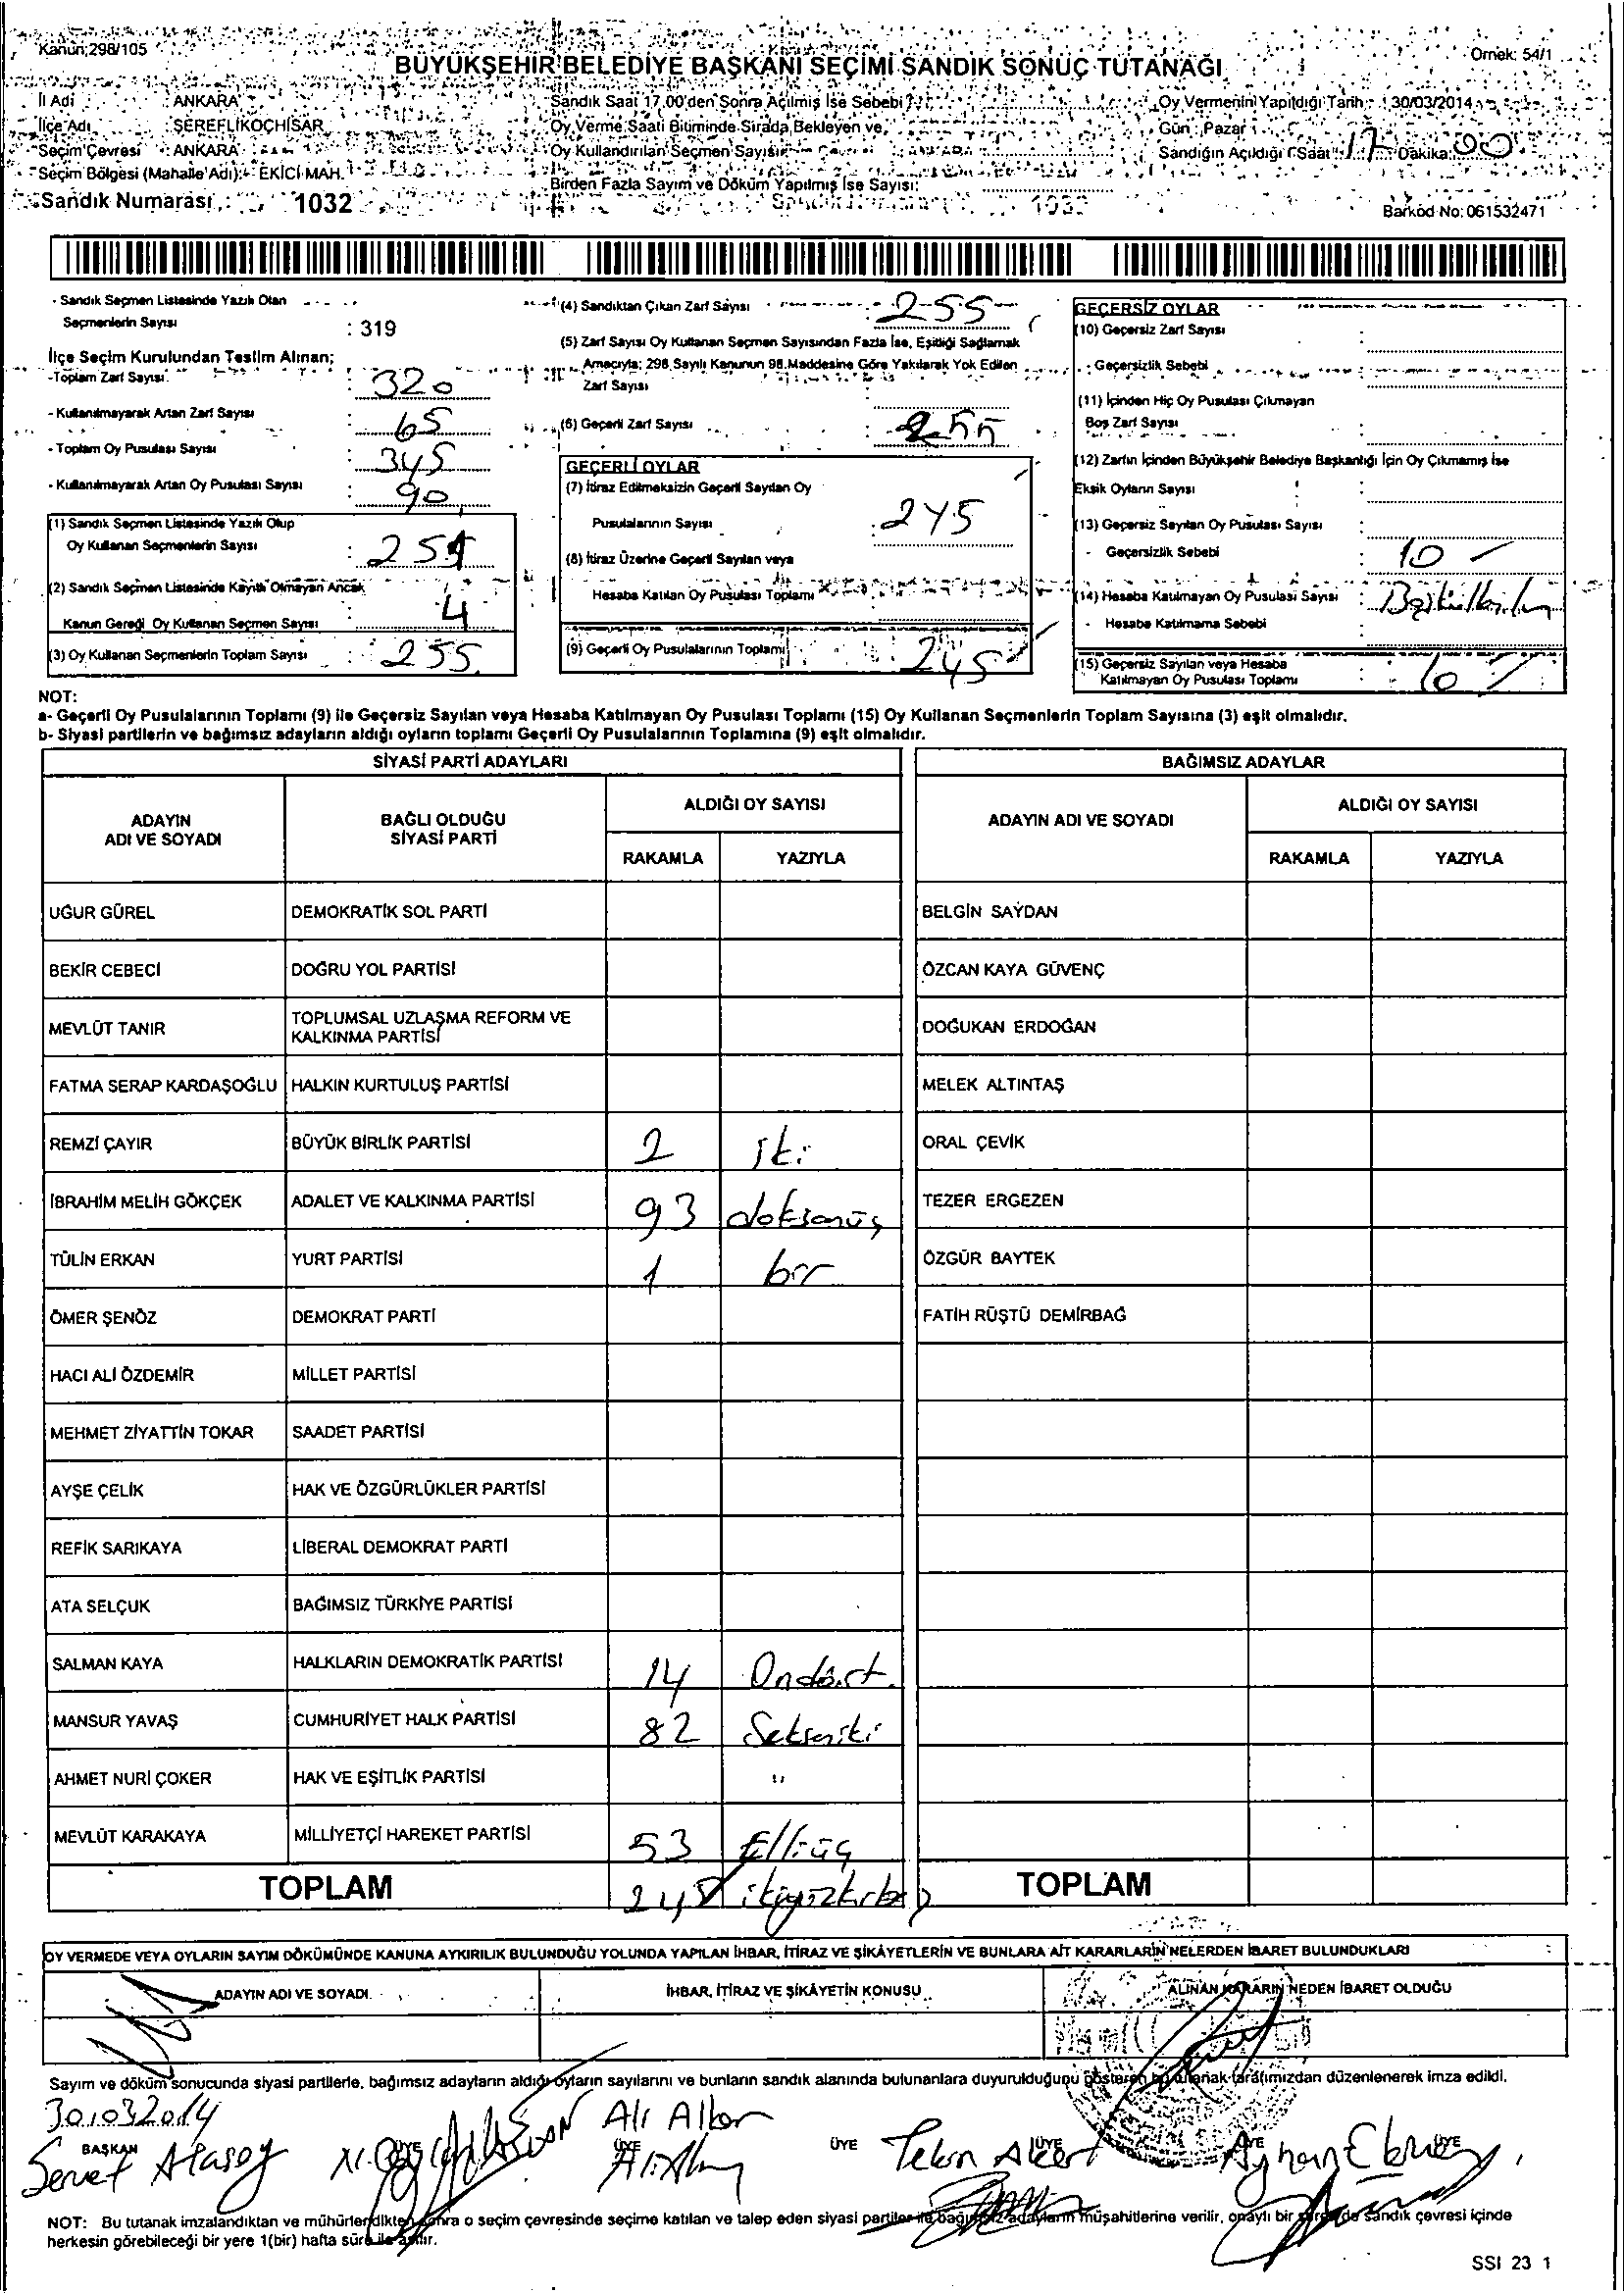 Kanun;298/105
Örnek: 54/1
BÜYÜKŞEHİR BELEDİYE BAŞKANI SEÇİMİ SANDIK SONUÇ TUTANAĞI
İl Adı : ANKARA
İlçe Adı : ŞEREFLİKOÇHİSAR
Seçim Çevresi : ANKARA
Seçim Bölgesi (Mahalle Adı): EKİCİ MAH.
Sandık Numarası : 1032
Sandık Saat 17.00'den Sonra Açılmış İse Sebebi
Oy Verme Saati Bitiminde Sırada Bekleyen ve
Oy Kullandırılan Seçmen Sayısı
Birden Fazla Sayım ve Döküm Yapılmış İse Sayısı:
Oy Vermenin Yapıldığı Tarih : 30/03/2014
Gün : Pazar
Sandığın Açıldığı Saat : 17 Dakika: 00
Barkod No: 061532471
- Sandık Seçmen Listesinde Yazılı Olan
Seçmenlerin Sayısı : 319
İlçe Seçim Kurulundan Teslim Alınan;
- Toplam Zarf Sayısı : 320
- Kullanılmayarak Artan Zarf Sayısı : 65
- Toplam Oy Pusulası Sayısı : 345
- Kullanılmayarak Artan Oy Pusulası Sayısı : 90
(1) Sandık Seçmen Listesinde Yazılı Olup
Oy Kullanan Seçmenlerin Sayısı : 251
(2) Sandık Seçmen Listesinde Kayıtlı Olmayan Ancak
Kanun Gereği Oy Kullanan Seçmen Sayısı : 4
(3) Oy Kullanan Seçmenlerin Toplam Sayısı : 255
(4) Sandıktan Çıkan Zarf Sayısı : 255
(5) Zarf Sayısı Oy Kullanan Seçmen Sayısından Fazla İse, Eşitliği Sağlamak
Amacıyla; 298 Sayılı Kanunun 98.Maddesine Göre Yakılarak Yok Edilen
Zarf Sayısı :
(6) Geçerli Zarf Sayısı : 255
GEÇERLİ OYLAR
(7) İtiraz Edilmeksizin Geçerli Sayılan Oy
Pusulalarının Sayısı : 245
(8) İtiraz Üzerine Geçerli Sayılan veya
Hesaba Katılan Oy Pusulası Toplamı
(9) Geçerli Oy Pusulalarının Toplamı : 245
GEÇERSİZ OYLAR
(10) Geçersiz Zarf Sayısı :
- Geçersizlik Sebebi :
(11) İçinden Hiç Oy Pusulası Çıkmayan
Boş Zarf Sayısı :
(12) Zarfın İçinden Büyükşehir Belediye Başkanlığı İçin Oy Çıkmamış İse
Eksik Oyların Sayısı :
(13) Geçersiz Sayılan Oy Pusulası Sayısı :
- Geçersizlik Sebebi : 10 -
(14) Hesaba Katılmayan Oy Pusulası Sayısı :
- Hesaba Katılmama Sebebi :
(15) Geçersiz Sayılan veya Hesaba
Katılmayan Oy Pusulası Toplamı : 10
NOT:
a- Geçerli Oy Pusulalarının Toplamı (9) ile Geçersiz Sayılan veya Hesaba Katılmayan Oy Pusulası Toplamı (15) Oy Kullanan Seçmenlerin Toplam Sayısına (3) eşit olmalıdır.
b- Siyasi partilerin ve bağımsız adayların aldığı oyların toplamı Geçerli Oy Pusulalarının Toplamına (9) eşit olmalıdır.
SİYASİ PARTİ ADAYLARI
BAĞIMSIZ ADAYLAR
ADAYIN ADI VE SOYADI
BAĞLI OLDUĞU SİYASİ PARTİ
ALDIĞI OY SAYISI
RAKAMLA YAZIYLA
ADAYIN ADI VE SOYADI
ALDIĞI OY SAYISI
RAKAMLA YAZIYLA
UĞUR GÜREL DEMOKRATİK SOL PARTİ BELGİN SAYDAN
BEKİR CEBECİ DOĞRU YOL PARTİSİ ÖZCAN KAYA GÜVENÇ
MEVLÜT TANIR TOPLUMSAL UZLAŞMA REFORM VE KALKINMA PARTİSİ DOĞUKAN ERDOĞAN
FATMA SERAP KARDAŞOĞLU HALKIN KURTULUŞ PARTİSİ MELEK ALTINTAŞ
REMZİ ÇAYIR BÜYÜK BİRLİK PARTİSİ 2 iki ORAL ÇEVİK
İBRAHİM MELİH GÖKÇEK ADALET VE KALKINMA PARTİSİ 93 doksanüç TEZER ERGEZEN
TÜLİN ERKAN YURT PARTİSİ 1 bir ÖZGÜR BAYTEK
ÖMER ŞENÖZ DEMOKRAT PARTİ FATİH RÜŞTÜ DEMİRBAĞ
HACI ALİ ÖZDEMİR MİLLET PARTİSİ
MEHMET ZİYATTİN TOKAR SAADET PARTİSİ
AYŞE ÇELİK HAK VE ÖZGÜRLÜKLER PARTİSİ
REFİK SARIKAYA LİBERAL DEMOKRAT PARTİ
ATA SELÇUK BAĞIMSIZ TÜRKİYE PARTİSİ
SALMAN KAYA HALKLARIN DEMOKRATİK PARTİSİ 14 Ondört
MANSUR YAVAŞ CUMHURİYET HALK PARTİSİ 82 Sekseniki
AHMET NURİ ÇOKER HAK VE EŞİTLİK PARTİSİ
MEVLÜT KARAKAYA MİLLİYETÇİ HAREKET PARTİSİ 53 Elliüç
TOPLAM 245 ikiyüzkırkbeş TOPLAM
OY VERMEDE VEYA OYLARIN SAYIM DÖKÜMÜNDE KANUNA AYKIRILIK BULUNDUĞU YOLUNDA YAPILAN İHBAR, İTİRAZ VE ŞİKÂYETLERİN VE BUNLARA AİT KARARLARIN NELERDEN İBARET BULUNDUKLARI
ADAYIN ADI VE SOYADI
İHBAR, İTİRAZ VE ŞİKÂYETİN KONUSU
ALINAN KARARIN NEDEN İBARET OLDUĞU
Sayım ve döküm sonucunda siyasi partilerle, bağımsız adayların aldığı oyların sayılarını ve bunların sandık alanında bulunanlara duyurulduğunu gösteren bu tutanak tarafımızdan düzenlenerek imza edildi.
30.03.2014
BAŞKAN ÜYE ÜYE ÜYE ÜYE ÜYE ÜYE
Servet Atasoy
Ali Alkan
NOT: Bu tutanak imzalandıktan ve mühürlendikten sonra o seçim çevresinde seçime katılan ve talep eden siyasi partiler ile bağımsız adayların müşahitlerine verilir, onaylı bir sureti de sandık çevresi içinde
herkesin görebileceği bir yere 1(bir) hafta süre ile asılır.
SSI 23 1